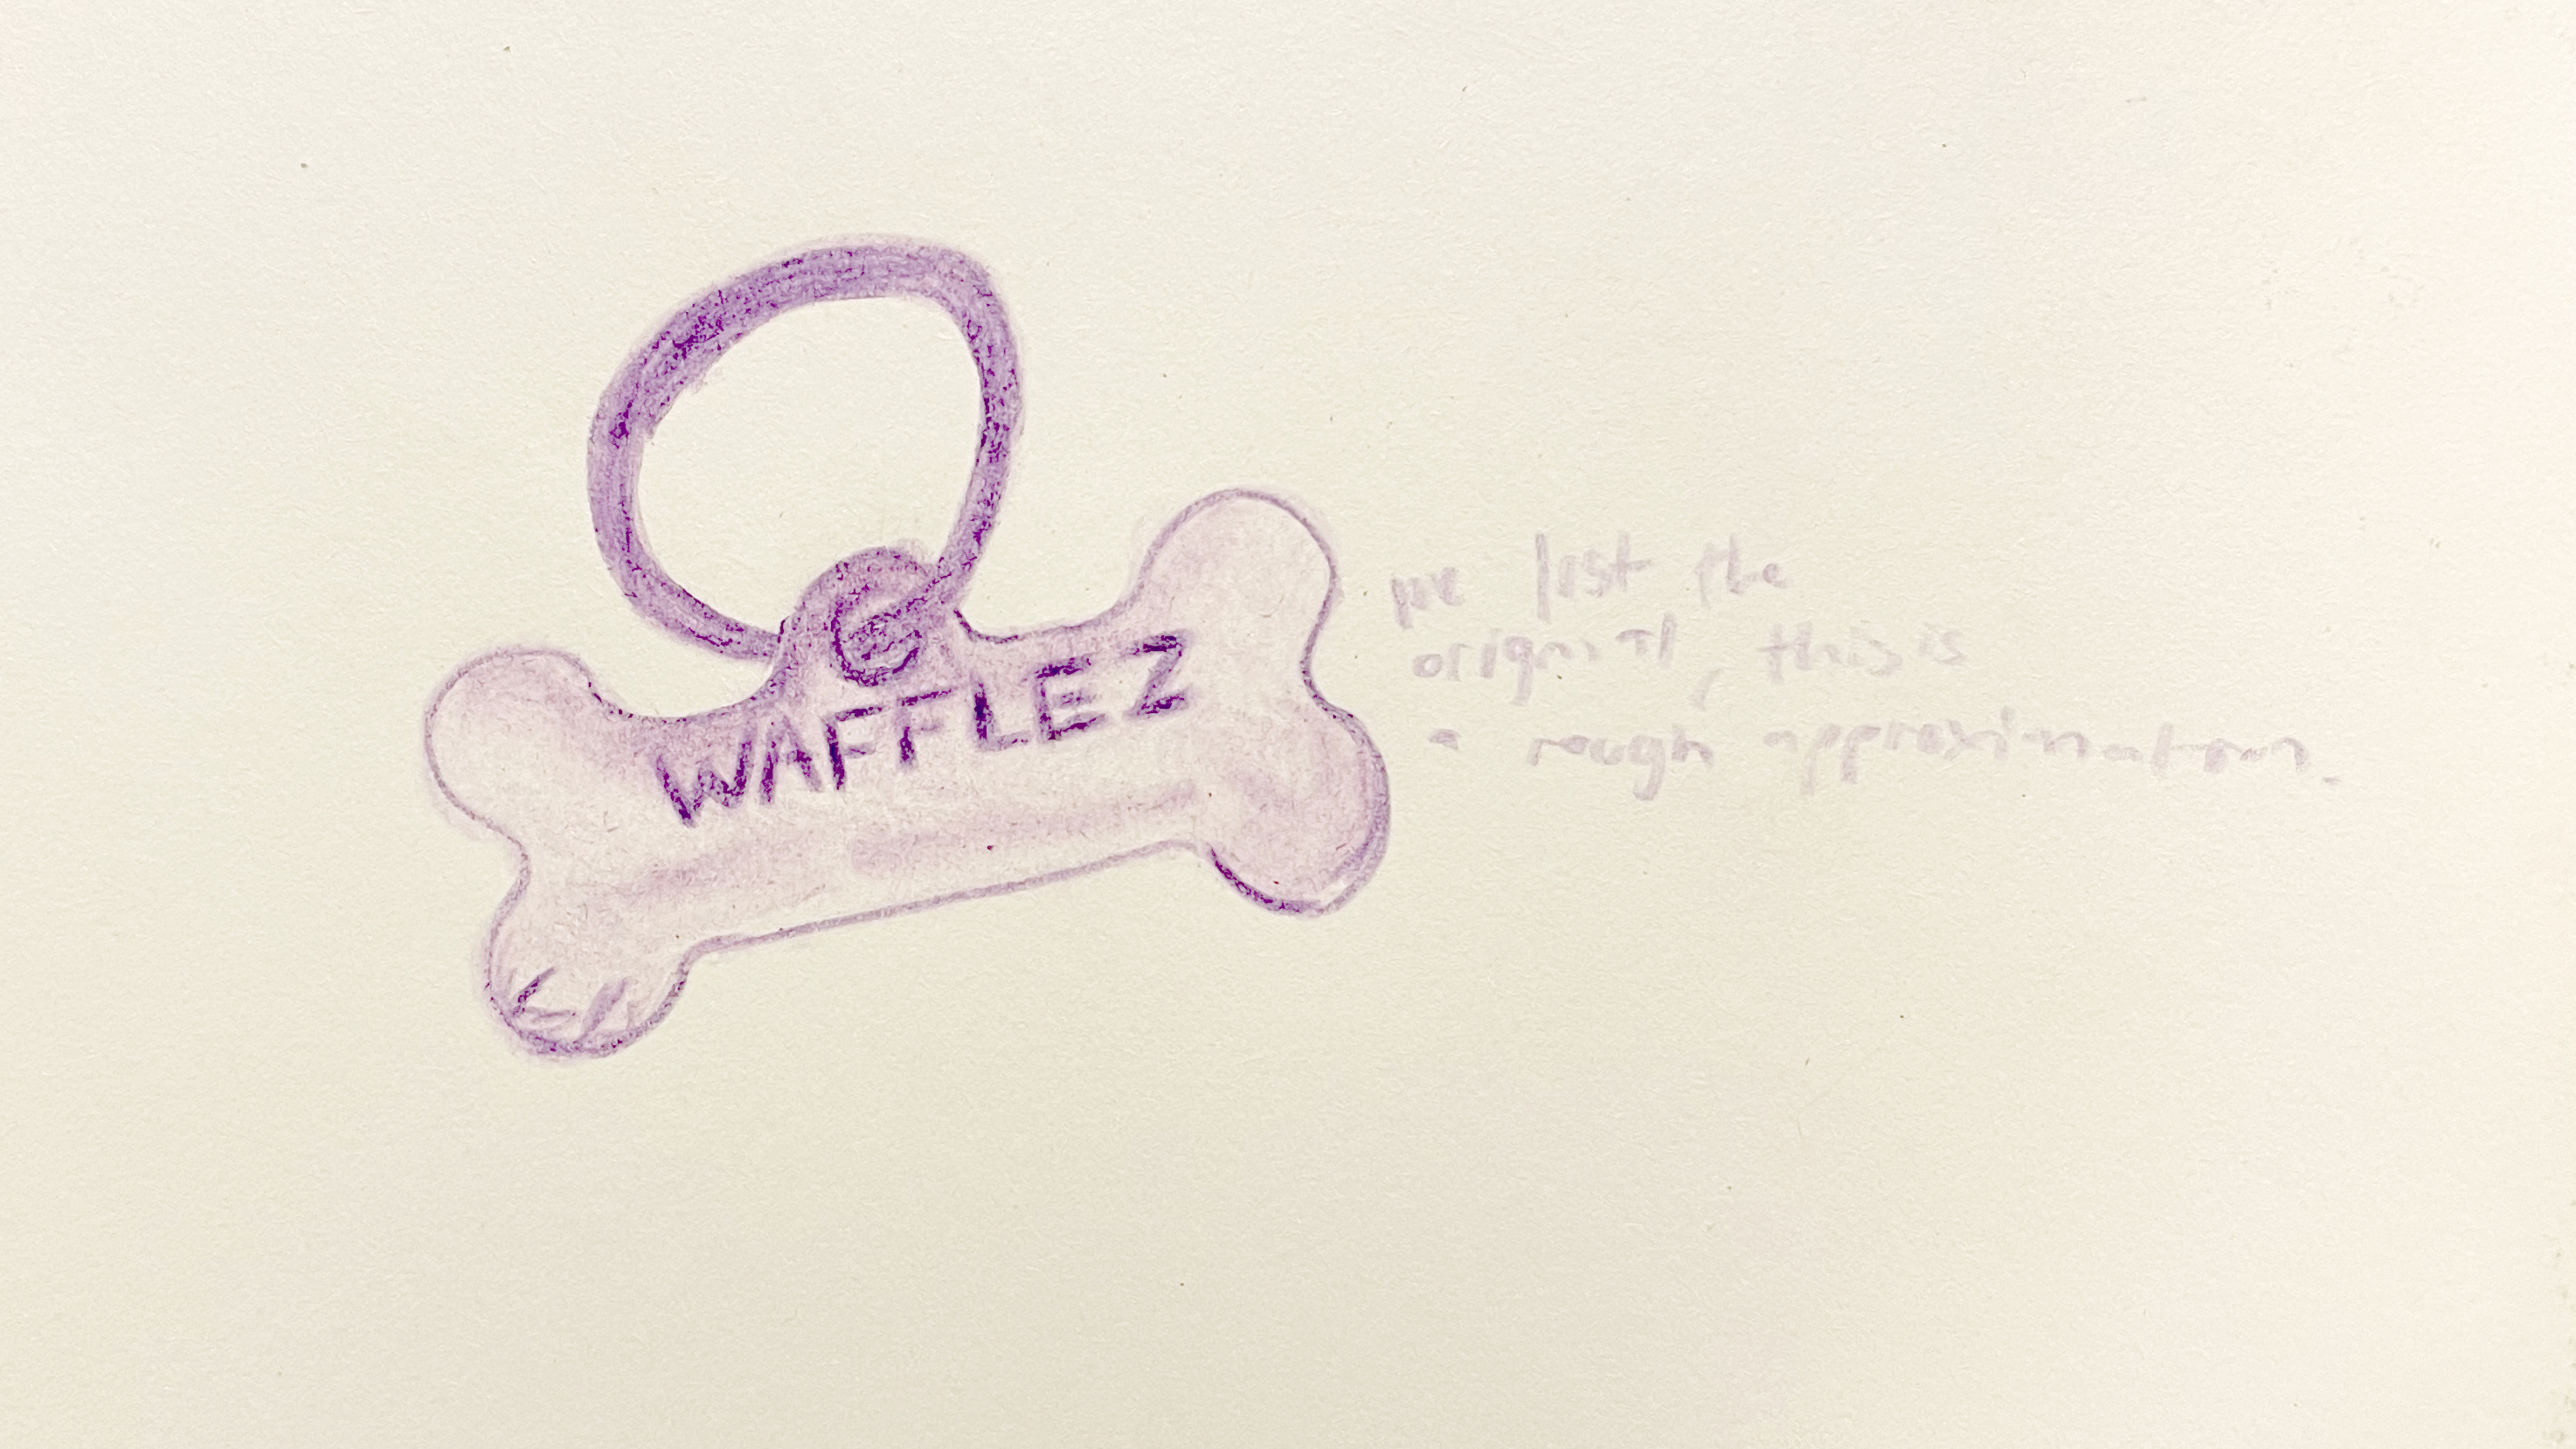 WAFFLEZ
we lost the
original, this is
a rough approximation.